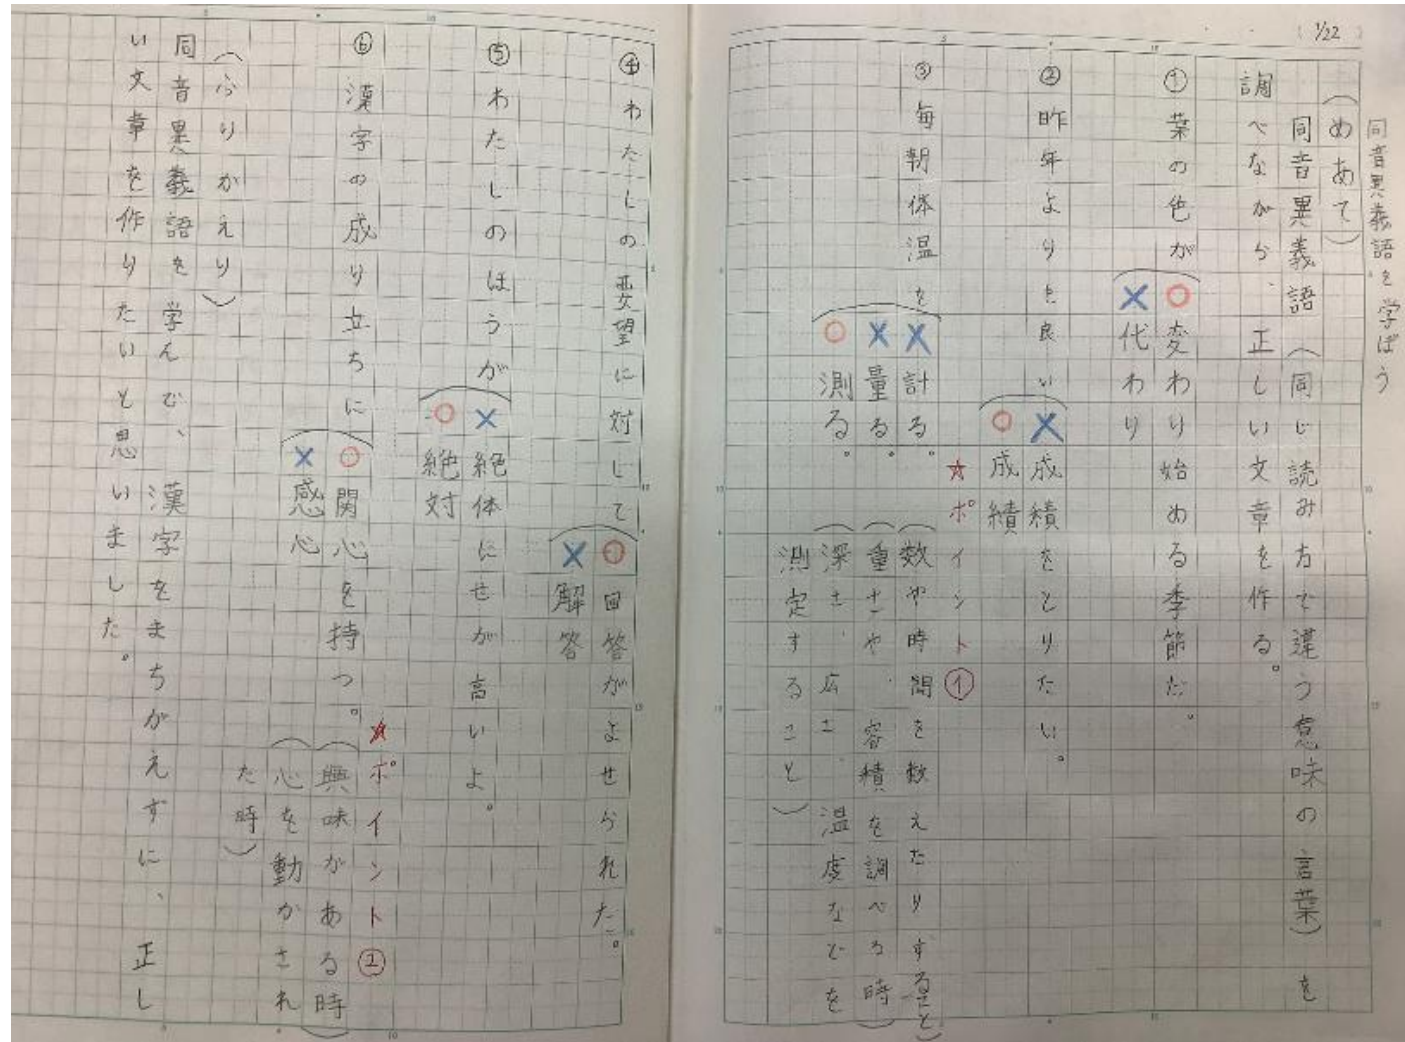 1/22
同音異義語を学ぼう
（めあて）
同音異義語（同じ読み方で違う意味の言葉）を
調べながら、正しい文章を作る。
①葉の色が
○変わり始める季節だ。
×代わり
②昨年よりも良い
×成積をとりたい。
○成績
③毎朝体温を
×計る。
×量る。
○測る。
☆ポイント①
（数や時間を数えたりすること）
（重さや、容積を調べる時）
（深さ、広さ、温度などを
測定すること）
④わたしの要望に対して
○回答がよせられた。
×解答
⑤わたしのほうが
×絶体にせが高いよ。
○絶対
⑥漢字の成り立ちに
○関心を持つ。
×感心
☆ポイント②
（興味がある時）
（心を動かされ
た時）
（ふりかえり）
同音異義語を学んで、漢字をまちがえずに、正し
い文章を作りたいと思いました。